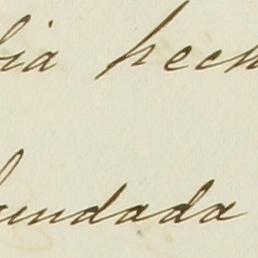 bia hech
fundada